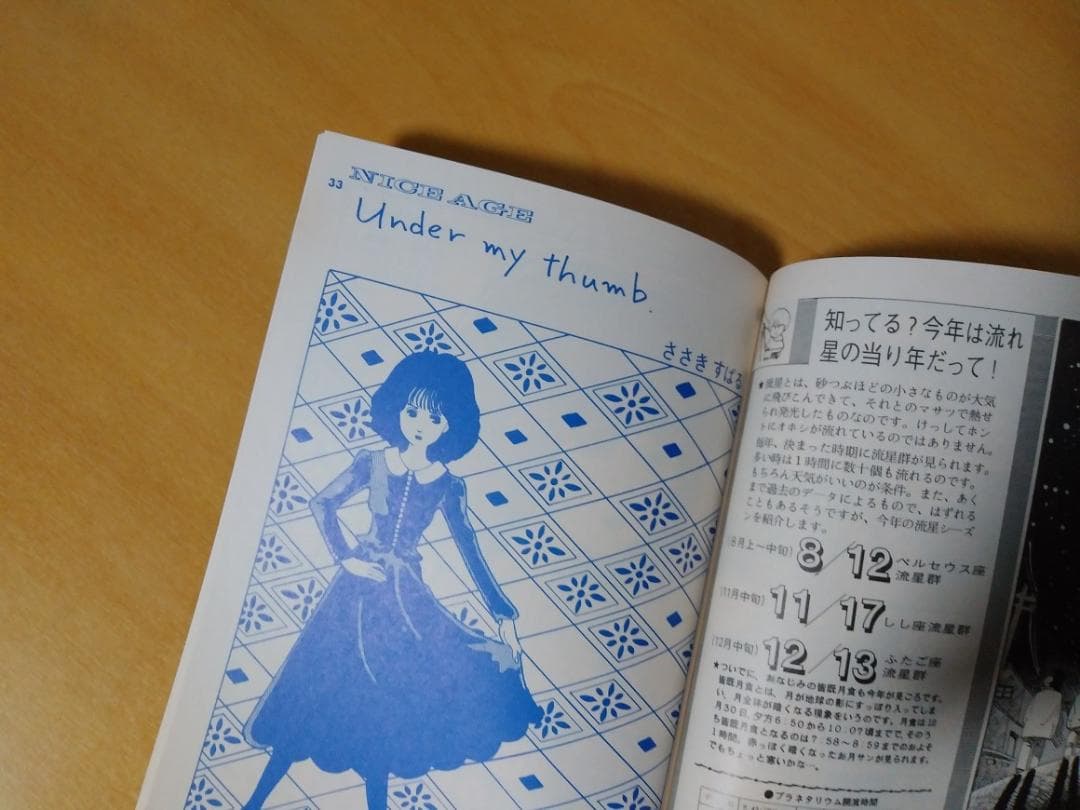 33
NICE AGE
Under my thumb
ささき すばる
知ってる？今年は流れ
星の当り年だって！
★流星とは、砂つぶほどの小さなものが大気
に飛びこんできて、それとのマサツで熱せ
られ発光したものなのです。けっしてホン
トにオホシが流れているのではありません。
毎年、決まった時期に流星群が見られます。
多い時は１時間に数十個も流れるのです。
もちろん天気がいいのが条件。また、あく
まで過去のデータによるもので、はずれる
こともあるそうですが、今年の流星シーズ
ンを紹介します。
(8月上〜中旬) 8／12 ペルセウス座
流星群
(11月中旬) 11／17 しし座流星群
(12月中旬) 12／13 ふたご座
流星群
★ついでに、おなじみの皆既月食も今年が見ごろです。
皆既月食とは、月が地球の影にすっぽり入ってしま
い、月全体が暗くなる現象をいうのです。月食は12
月30日、夕方6:50から10:07頃までで、そのう
ち皆既月食となるのは7:58〜8:59までのおよそ
１時間。赤っぽく暗くなったお月サンが見られます。
でもちょっと寒いかな…。
●プラネタリウム開演時間